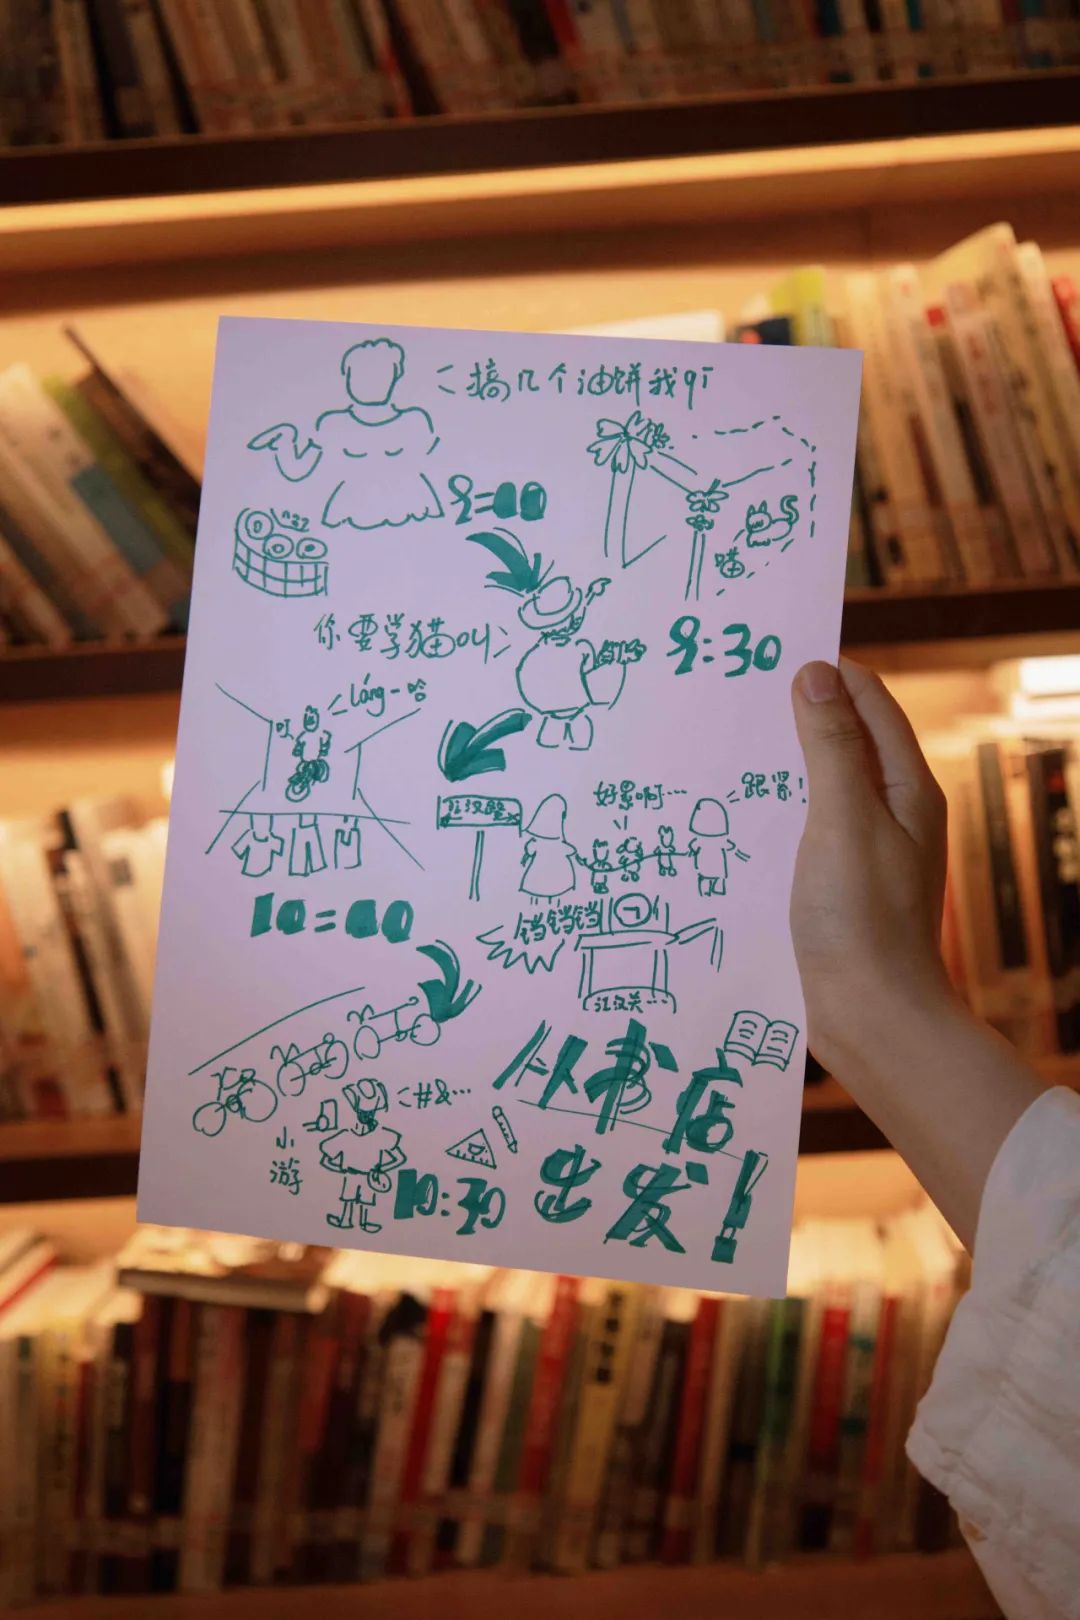 搞几个油饼我qī
9:00
喵
你要学猫叫
9:30
láng-哈
叮
江汉路
好累啊…
跟紧!
10:00
铛铛铛
江汉关…
#&…
小游
10:30
从书店
出发!